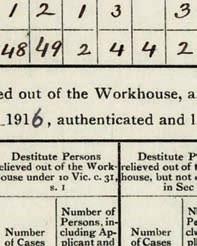 1 2 1 3 3
48 49 2 4 4 2
ed out of the Workhouse, a
1916, authenticated and l
Destitute Persons Destitute P
relieved out of the Work- relieved out of t
ouse under 10 Vic. c. 31, house, but not
s. 1 in Sec
Number of
Persons, in- Pe
Number cluding Ap- Number clu
of Cases plicant and of Cases pli